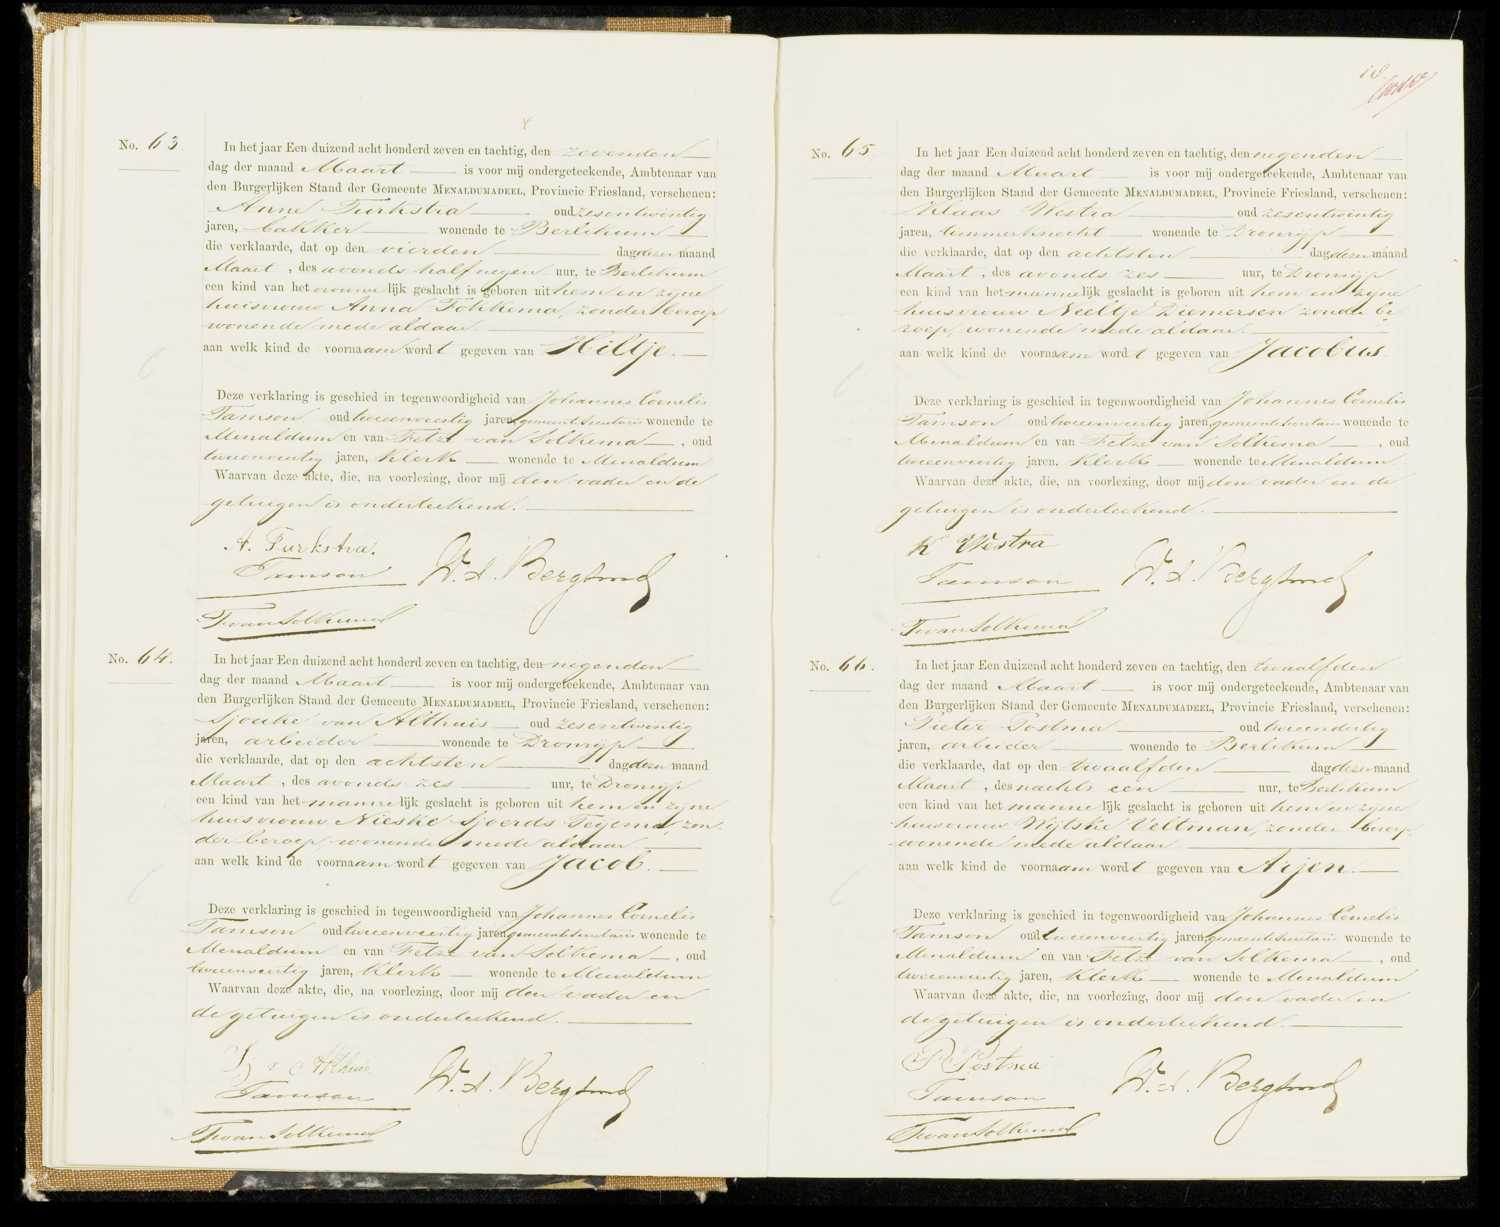 No. 63.
In het jaar Een duizend acht honderd zeven en tachtig, den zevenden
dag der maand Maart is voor mij ondergeteekende, Ambtenaar van
den Burgerlijken Stand der Gemeente MENALDUMADEEL, Provincie Friesland, verschenen:
Anne Turkstra oud zesentwintig
jaren, bakker wonende te Berlikum
die verklaarde, dat op den vierden dag dezer maand
Maart, des avonds half negen uur, te Berlikum
een kind van het vrouwelijk geslacht is geboren uit hem en zijne
huisvrouw Anna Fokkema, zonder beroep
wonende mede aldaar
aan welk kind de voornaam wordt gegeven van Hiltje.
Deze verklaring is geschied in tegenwoordigheid van Johannes Cornelis
Tamson oud tweeenveertig jaren, gemeentesecretaris wonende te
Menaldum en van Fetze van Solkema, oud
tweeenveertig jaren, klerk wonende te Menaldum
Waarvan deze akte, die, na voorlezing, door mij den vader en de
getuigen is onderteekend.
A. Turkstra.
Tamson W. A. Bergsma
F van Solkema
No. 64.
In het jaar Een duizend acht honderd zeven en tachtig, den negenden
dag der maand Maart is voor mij ondergeteekende, Ambtenaar van
den Burgerlijken Stand der Gemeente MENALDUMADEEL, Provincie Friesland, verschenen:
Sjoeke van Althuis oud zesentwintig
jaren, arbeider wonende te Dronrijp
die verklaarde, dat op den achtsten dag dezer maand
Maart, des avonds zes uur, te Dronrijp
een kind van het mannelijk geslacht is geboren uit hem en zijne
huisvrouw Nieske Sjoerds Teijema, zon
der beroep wonende mede aldaar
aan welk kind de voornaam wordt gegeven van Jacob.
Deze verklaring is geschied in tegenwoordigheid van Johannes Cornelis
Tamson oud tweeenveertig jaren, gemeentesecretaris wonende te
Menaldum en van Fetze van Solkema, oud
tweeenveertig jaren, klerk wonende te Menaldum
Waarvan deze akte, die, na voorlezing, door mij den vader en
de getuigen is onderteekend.
S v Althuis
Tamson W. A. Bergsma
F van Solkema
18
No. 65
In het jaar Een duizend acht honderd zeven en tachtig, den negenden
dag der maand Maart is voor mij ondergeteekende, Ambtenaar van
den Burgerlijken Stand der Gemeente MENALDUMADEEL, Provincie Friesland, verschenen:
Klaas Westra oud zesentwintig
jaren, timmerknecht wonende te Dronrijp
die verklaarde, dat op den achtsten dag dezer maand
Maart, des avonds zes uur, te Dronrijp
een kind van het mannelijk geslacht is geboren uit hem en zijne
huisvrouw Neeltje Ziemersen zonder be
roep, wonende mede aldaar
aan welk kind de voornaam wordt gegeven van Jacobus.
Deze verklaring is geschied in tegenwoordigheid van Johannes Cornelis
Tamson oud tweeenveertig jaren, gemeentesecretaris wonende te
Menaldum en van Fetze van Solkema, oud
tweeenveertig jaren, klerk wonende te Menaldum
Waarvan deze akte, die, na voorlezing, door mij den vader en de
getuigen is onderteekend.
K Westra
Tamson W. A. Bergsma
F van Solkema
No. 66.
In het jaar Een duizend acht honderd zeven en tachtig, den twaalfden
dag der maand Maart is voor mij ondergeteekende, Ambtenaar van
den Burgerlijken Stand der Gemeente MENALDUMADEEL, Provincie Friesland, verschenen:
Pieter Postma oud tweeendertig
jaren, arbeider wonende te Berlikum
die verklaarde, dat op den twaalfden dag dezer maand
Maart, des nachts een uur, te Berlikum
een kind van het mannelijk geslacht is geboren uit hem en zijne
huisvrouw Wijtske Veltman, zonder beroep
wonende mede aldaar
aan welk kind de voornaam wordt gegeven van Arjen.
Deze verklaring is geschied in tegenwoordigheid van Johannes Cornelis
Tamson oud tweeenveertig jaren, gemeentesecretaris wonende te
Menaldum en van Fetze van Solkema, oud
tweeenveertig jaren, klerk wonende te Menaldum
Waarvan deze akte, die, na voorlezing, door mij den vader en
de getuigen is onderteekend.
P Postma
Tamson W. A. Bergsma
F van Solkema